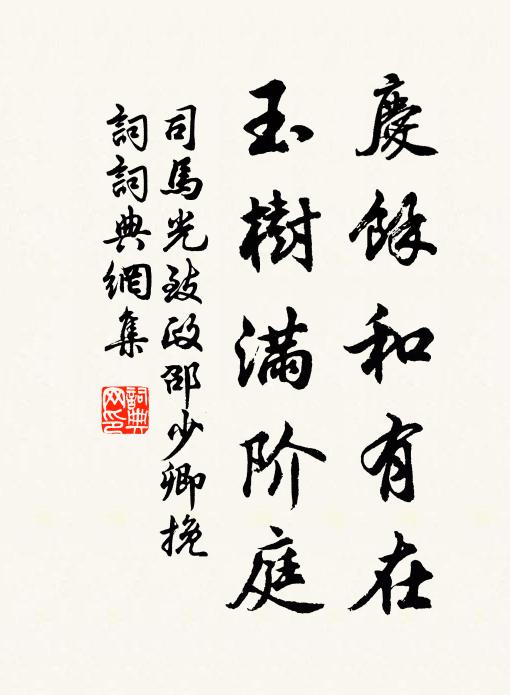 慶餘和有在
玉樹滿阶庭
司馬光致政邵少卿挽
詞詞典網集
詞典
网印